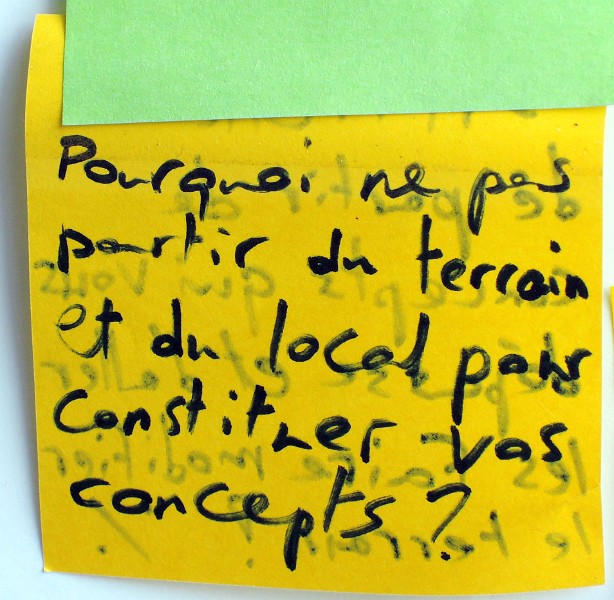 Pourquoi ne pas
partir du terrain
et du local pour
constituer vos
concepts ?